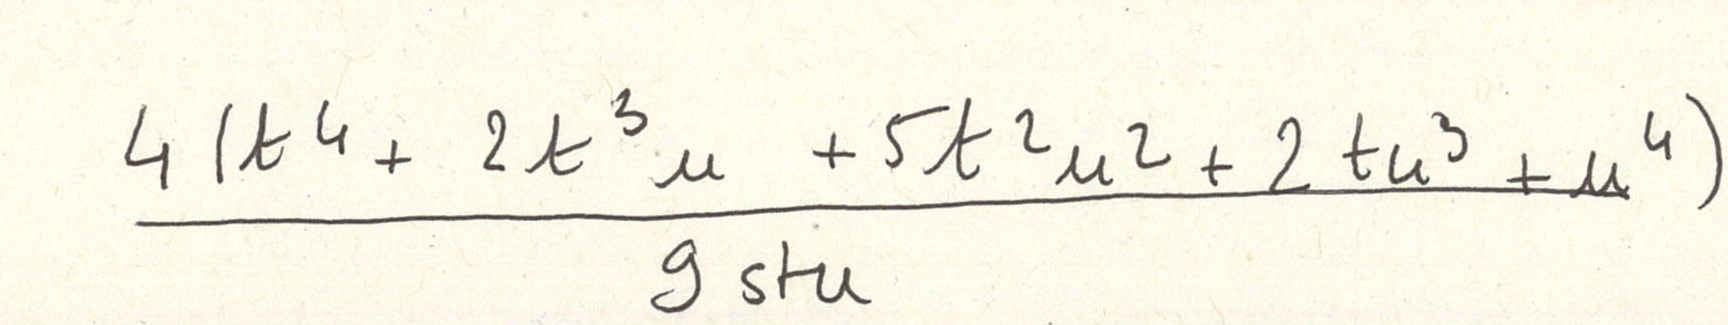 4(t⁴ + 2t³u + 5t²u² + 2tu³ + u⁴)
9stu